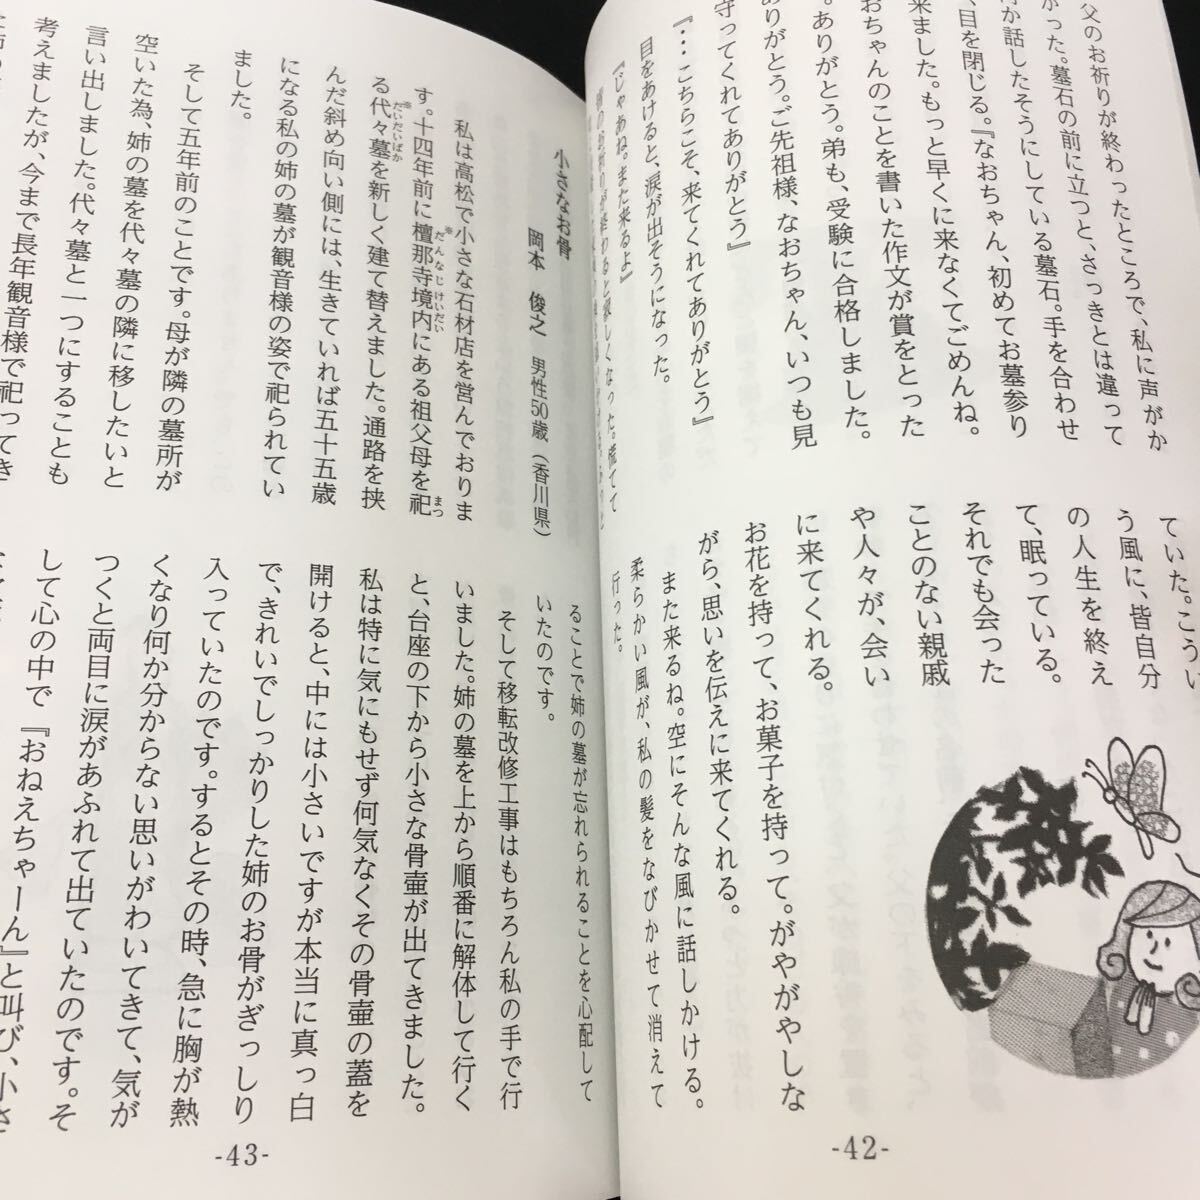 父のお祈りが終わったところで、私に声がか
かった。墓石の前に立つと、さっきとは違って
何か話したそうにしている墓石。手を合わせ
、目を閉じる。『なおちゃん、初めてお墓参り
来ました。もっと早くに来なくてごめんね。
おちゃんのことを書いた作文が賞をとった
。ありがとう。弟も、受験に合格しました。
ありがとう。ご先祖様、なおちゃん、いつも見
守ってくれてありがとう』
『・・・こちらこそ、来てくれてありがとう』
目をあけると、涙が出そうになった。
『じゃあね。また来るよ』
ていた。こうい
う風に、皆自分
の人生を終え
て、眠っている。
それでも会った
ことのない親戚
や人々が、会い
に来てくれる。
お花を持って、お菓子を持って。がやがやしな
がら、思いを伝えに来てくれる。
また来るね。空にそんな風に話しかける。
柔らかい風が、私の髪をなびかせて消えて
行った。
-42-
小さなお骨
岡本 俊之 男性50歳（香川県）
私は高松で小さな石材店を営んでおりま
す。十四年前に檀那寺境内にある祖父母を祀
だんなじ けいだい まつ
る代々墓を新しく建て替えました。通路を挟
だいだいばか
んだ斜め向い側には、生きていれば五十五歳
になる私の姉の墓が観音様の姿で祀られてい
ました。
そして五年前のことです。母が隣の墓所が
空いた為、姉の墓を代々墓の隣に移したいと
言い出しました。代々墓と一つにすることも
考えましたが、今まで長年観音様で祀ってき
ることで姉の墓が忘れられることを心配して
いたのです。
そして移転改修工事はもちろん私の手で行
いました。姉の墓を上から順番に解体して行く
と、台座の下から小さな骨壷が出てきました。
私は特に気にもせず何気なくその骨壷の蓋を
開けると、中には小さいですが本当に真っ白
で、きれいでしっかりした姉のお骨がぎっしり
入っていたのです。するとその時、急に胸が熱
くなり何か分からない思いがわいてきて、気が
つくと両目に涙があふれて出ていたのです。そ
して心の中で『おねえちゃーん』と叫び、小さ
-43-